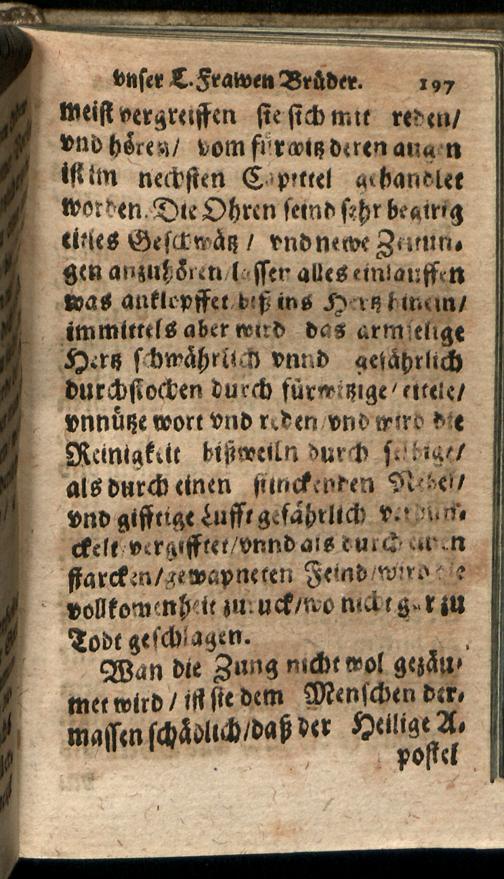 vnser L. Frawen Brüder. 197
meist vergreiffen sie sich mit reden/
vnd hören/ vom fürwitz deren augen
ist im nechsten Capittel gehandlet
worden. Die Ohren seind sehr begirig
eitles Geschwätz / vnd newe Zeitun-
gen anzuhören/lassen alles einlauffen
was anklopffet biß ins Hertz hinein/
immittels aber wird das armselige
Hertz schwährlich vnnd gefährlich
durchstochen durch fürwitzige/ eitele/
vnnütze wort vnd reden/vnd wird die
Reinigkeit bißweiln durch selbige/
als durch einen stinckenden Nebel/
vnd gifftige Lufft gefährlich verdun-
ckelt/vergifftet/vnnd als durch einen
starcken/gewapneten Feind/wird die
vollkomenheit zuruck/wo nicht gar zu
Todt geschlagen.
Wan die Zung nicht wol gezäu-
met wird / ist sie dem Menschen der-
massen schädlich/daß der Heilige A-
postel